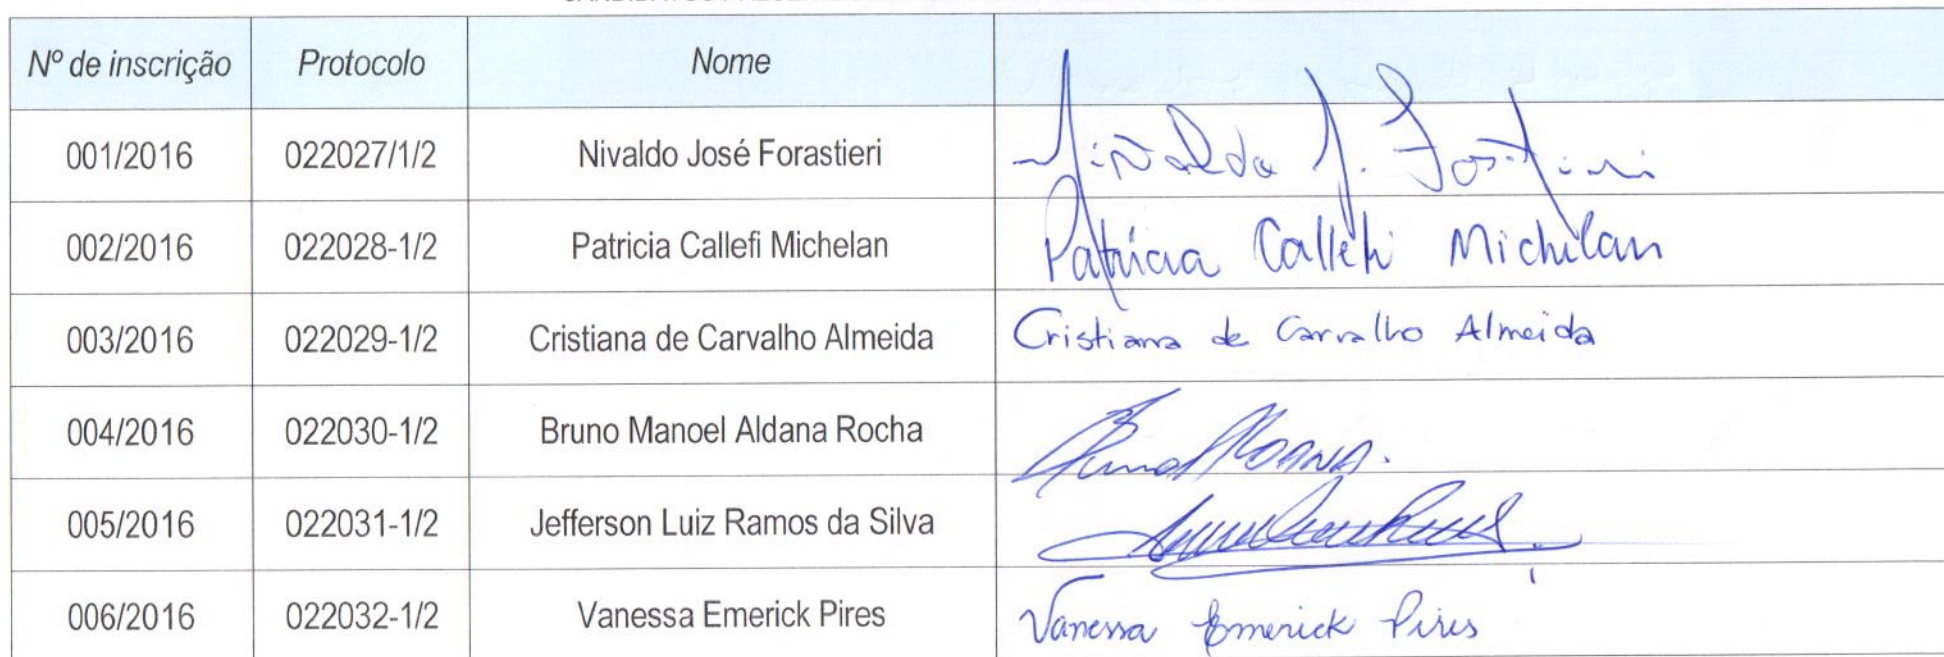 Nº de inscrição Protocolo Nome
001/2016 022027/1/2 Nivaldo José Forastieri Nivaldo J. Forastieri
002/2016 022028-1/2 Patricia Callefi Michelan Patricia Callefi Michelan
003/2016 022029-1/2 Cristiana de Carvalho Almeida Cristiana de Carvalho Almeida
004/2016 022030-1/2 Bruno Manoel Aldana Rocha
005/2016 022031-1/2 Jefferson Luiz Ramos da Silva
006/2016 022032-1/2 Vanessa Emerick Pires Vanessa Emerick Pires